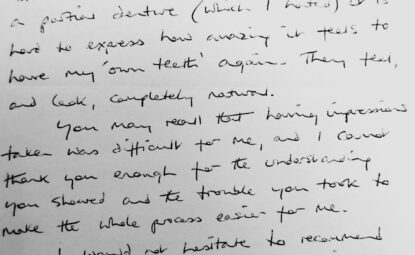 a partial denture (which I hated) it is
hard to express how amazing it feels to
have my 'own teeth' again. They feel,
and look, completely natural.
You may recall that having impressions
taken was difficult for me, and I cannot
thank you enough for the understanding
you showed and the trouble you took to
make the whole process easier for me.
I would not hesitate to recommend